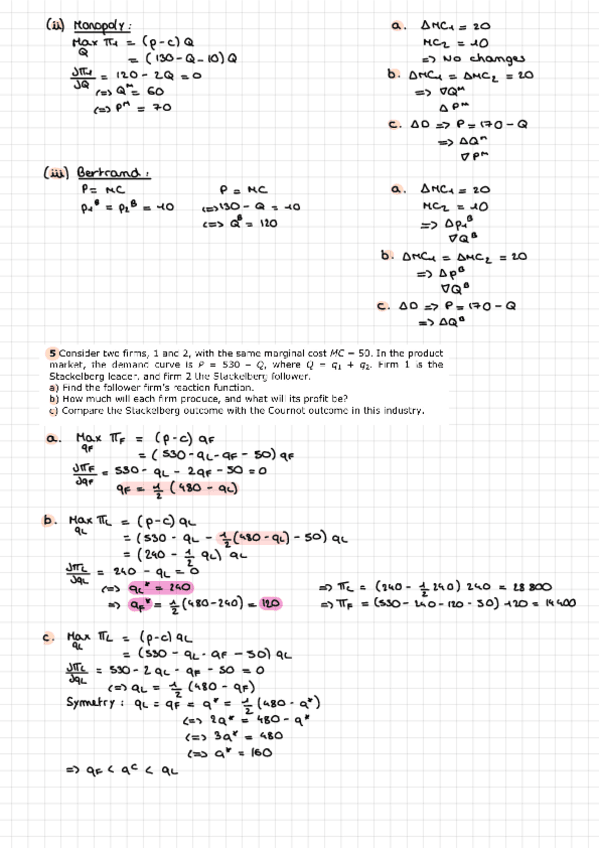 (ii) Monopoly:
Max π₁ = (p-c) Q
Q
= (130-Q-10) Q
∂π₁/∂Q = 120 - 2Q = 0
(=) Qᴹ = 60
(=) Pᴹ = 70
a. ΔMC₁ = 20
MC₂ = 10
=> No changes
b. ΔMC₁ = ΔMC₂ = 20
=> ∇Qᴹ
ΔPᴹ
c. ΔD => P = 170 - Q
=> ΔQᴹ
∇Pᴹ
(iii) Bertrand:
P = MC
p₁ᴮ = p₂ᴮ = 10
P = MC
(=) 130 - Q = 10
(=) Qᴮ = 120
a. ΔMC₁ = 20
MC₂ = 10
=> Δp₁ᴮ
∇Qᴮ
b. ΔMC₁ = ΔMC₂ = 20
=> Δpᴮ
∇Qᴮ
c. ΔD => P = 170 - Q
=> ΔQᴮ
5 Consider two firms, 1 and 2, with the same marginal cost MC = 50. In the product
market, the demand curve is P = 530 - Q, where Q = q₁ + q₂. Firm 1 is the
Stackelberg leader, and firm 2 the Stackelberg follower.
a) Find the follower firm's reaction function.
b) How much will each firm produce, and what will its profit be?
c) Compare the Stackelberg outcome with the Cournot outcome in this industry.
a. Max πF = (p-c) qF
qF
= (530 - qL - qF - 50) qF
∂πF/∂qF = 530 - qL - 2qF - 50 = 0
qF = 1/2 (480 - qL)
b. Max πL = (p-c) qL
qL
= (530 - qL - 1/2(480 - qL) - 50) qL
= (240 - 1/2 qL) qL
∂πL/∂qL = 240 - qL = 0
(=) qL* = 240
=> qF* = 1/2 (480-240) = 120
=> πL = (240 - 1/2 240) 240 = 28 800
=> πF = (530 - 240 - 120 - 50) 120 = 14 400
c. Max πL = (p-c) qL
qL
= (530 - qL - qF - 50) qL
∂πL/∂qL = 530 - 2qL - qF - 50 = 0
(=) qL = 1/2 (480 - qF)
Symetry: qL = qF = q* = 1/2 (480 - q*)
(=) 2q* = 480 - q*
(=) 3q* = 480
(=) q* = 160
=> qF < qᶜ < qL